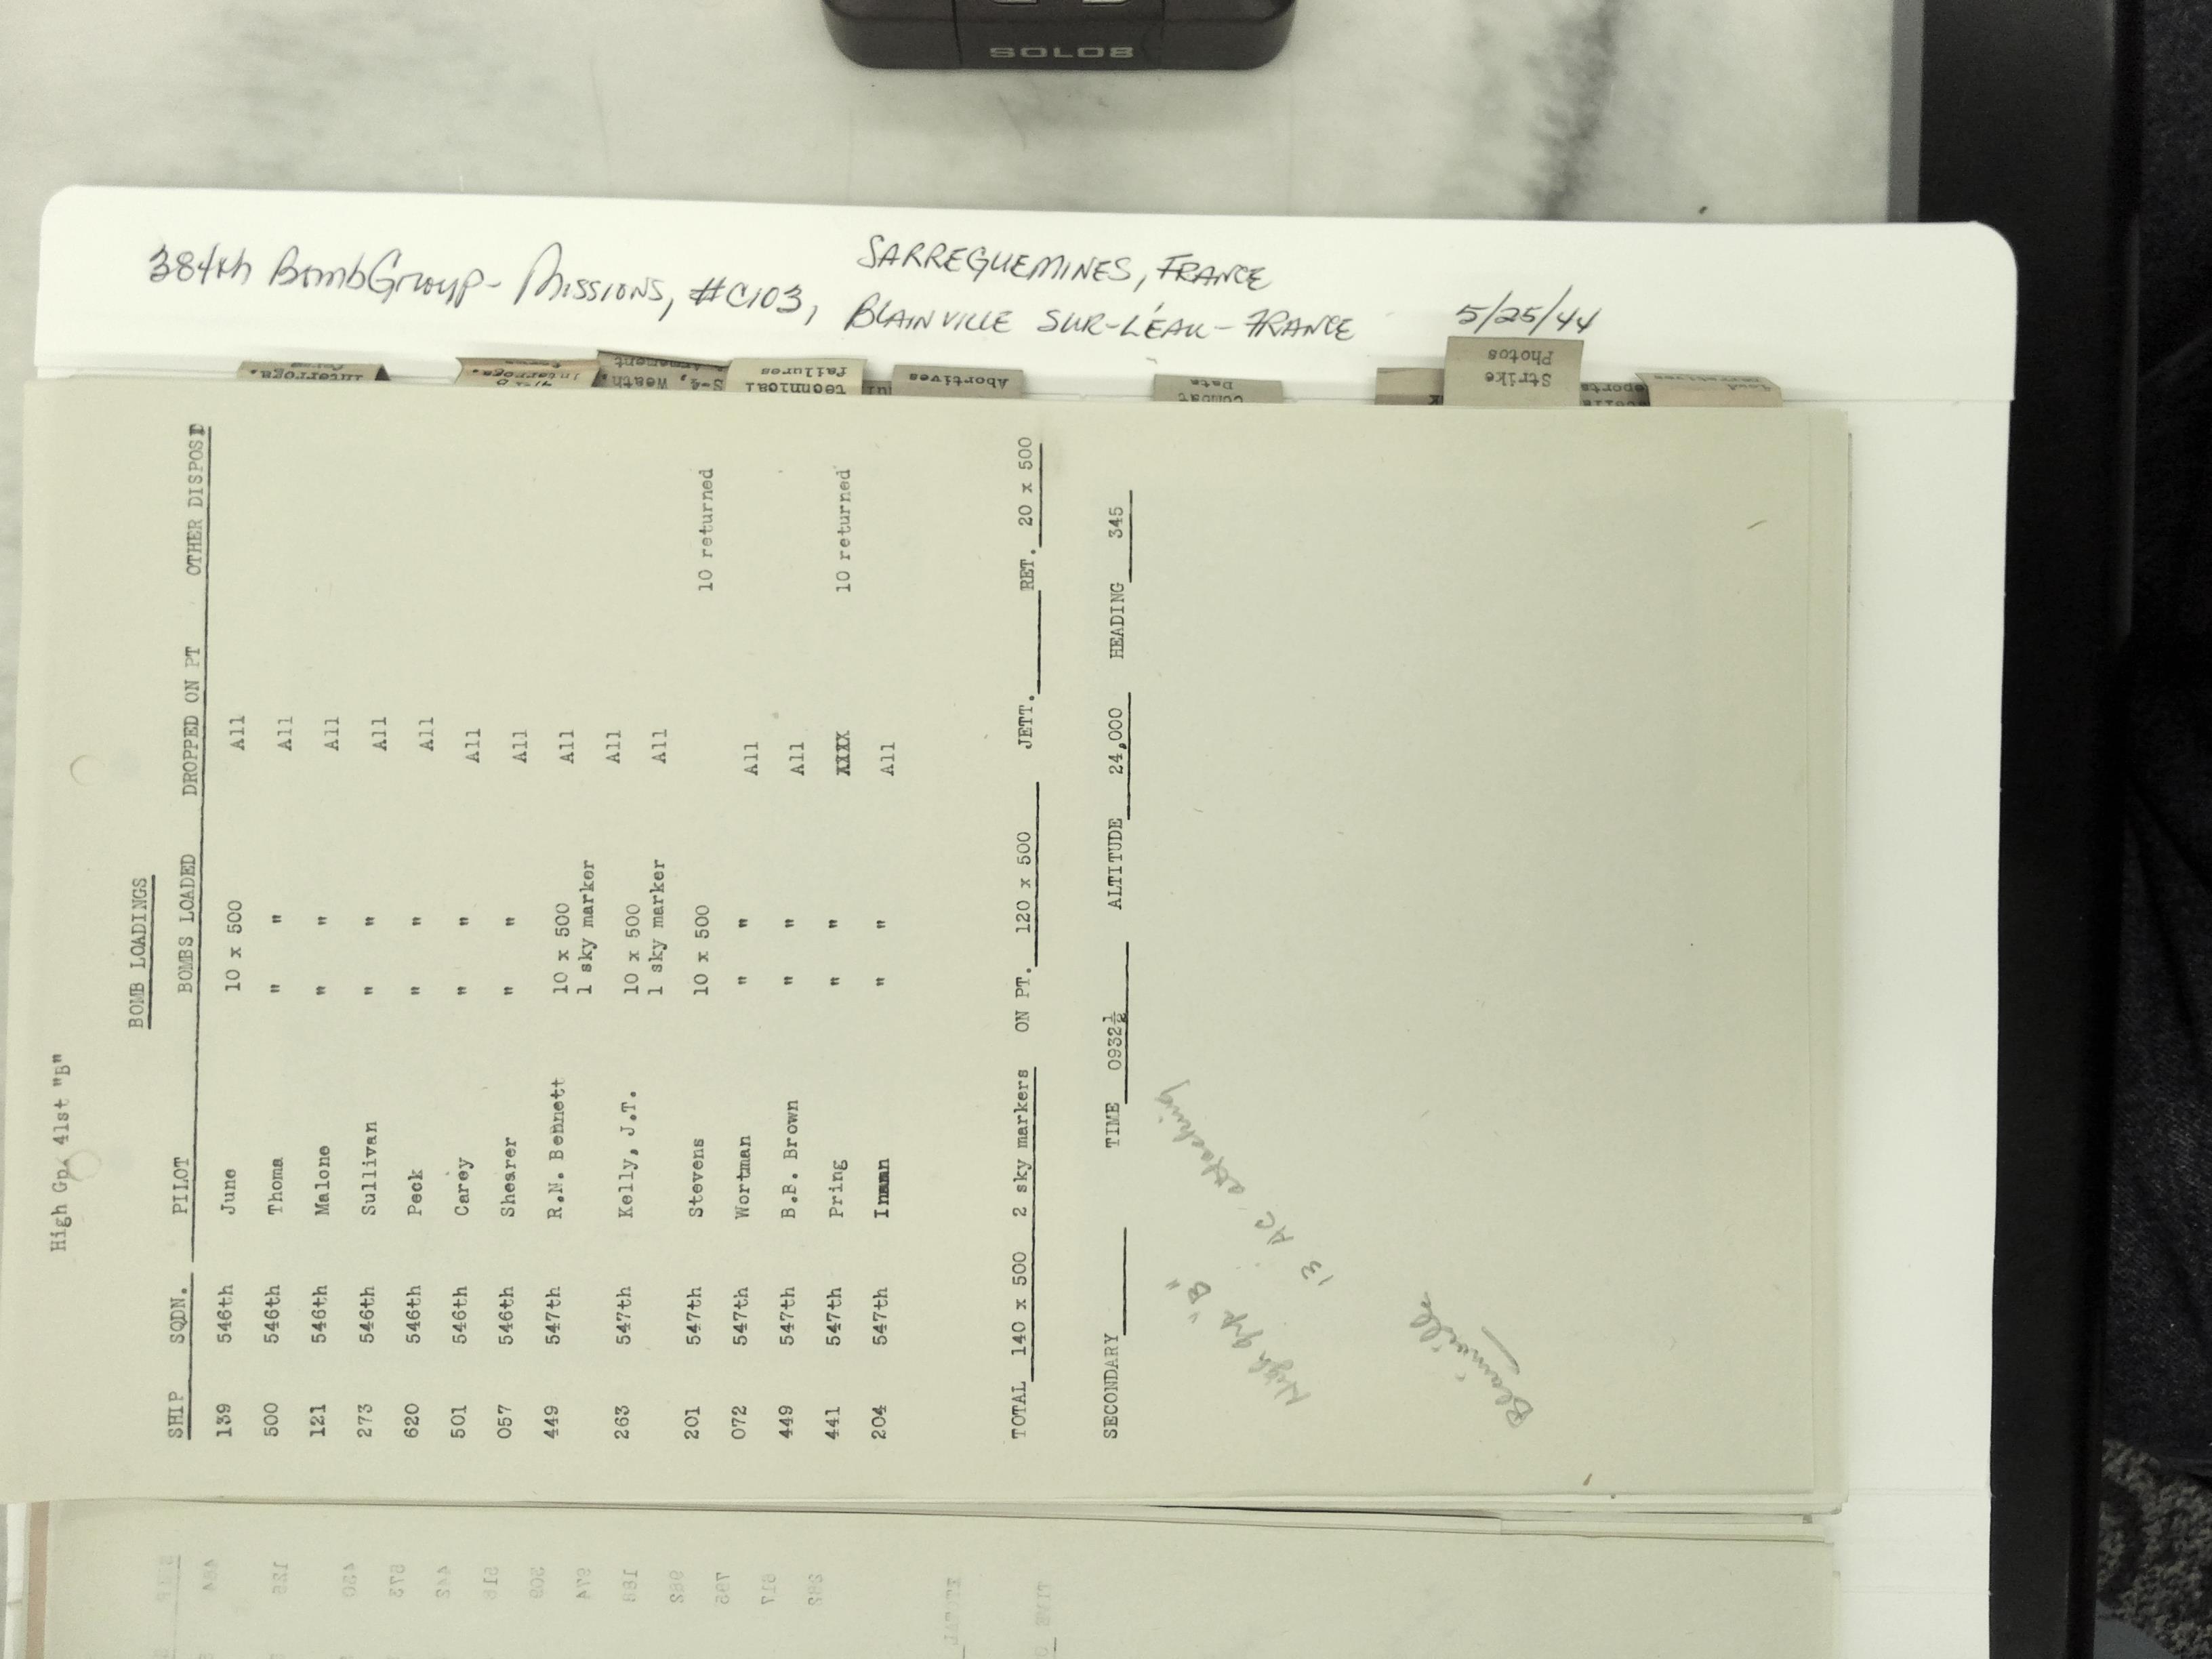 SOLO8
384th BombGroup - Missions, #C103, SARREGUEMINES, FRANCE
BLAINVILLE SUR-L'ÉAU - FRANCE
5/25/44
Interroga.
Interroga.
S-2, Weath,
technical
failures
Abortives
Combat
Data
Strike
Photos
High Gp. 41st "B"
BOMB LOADINGS
SHIP SQDN. PILOT BOMBS LOADED DROPPED ON PT OTHER DISPOSI
139 546th June 10 x 500 All
500 546th Thoma " " All
121 546th Malone " " All
273 546th Sullivan " " All
620 546th Peck " " All
501 546th Carey " " All
057 546th Shearer " " All
449 547th R.N. Bennett 10 x 500 All
1 sky marker
263 547th Kelly, J.T. 10 x 500 All
1 sky marker All
201 547th Stevens 10 x 500 10 returned
072 547th Wortman " " All
449 547th B.B. Brown " " All
441 547th Pring " " XXXX 10 returned
204 547th Inman " " All
TOTAL 140 x 500 2 sky markers ON PT. 120 x 500 JETT. RET. 20 x 500
SECONDARY TIME 0932½ ALTITUDE 24,000 HEADING 345
High Gp "B"
13 AC attacking
Blainville